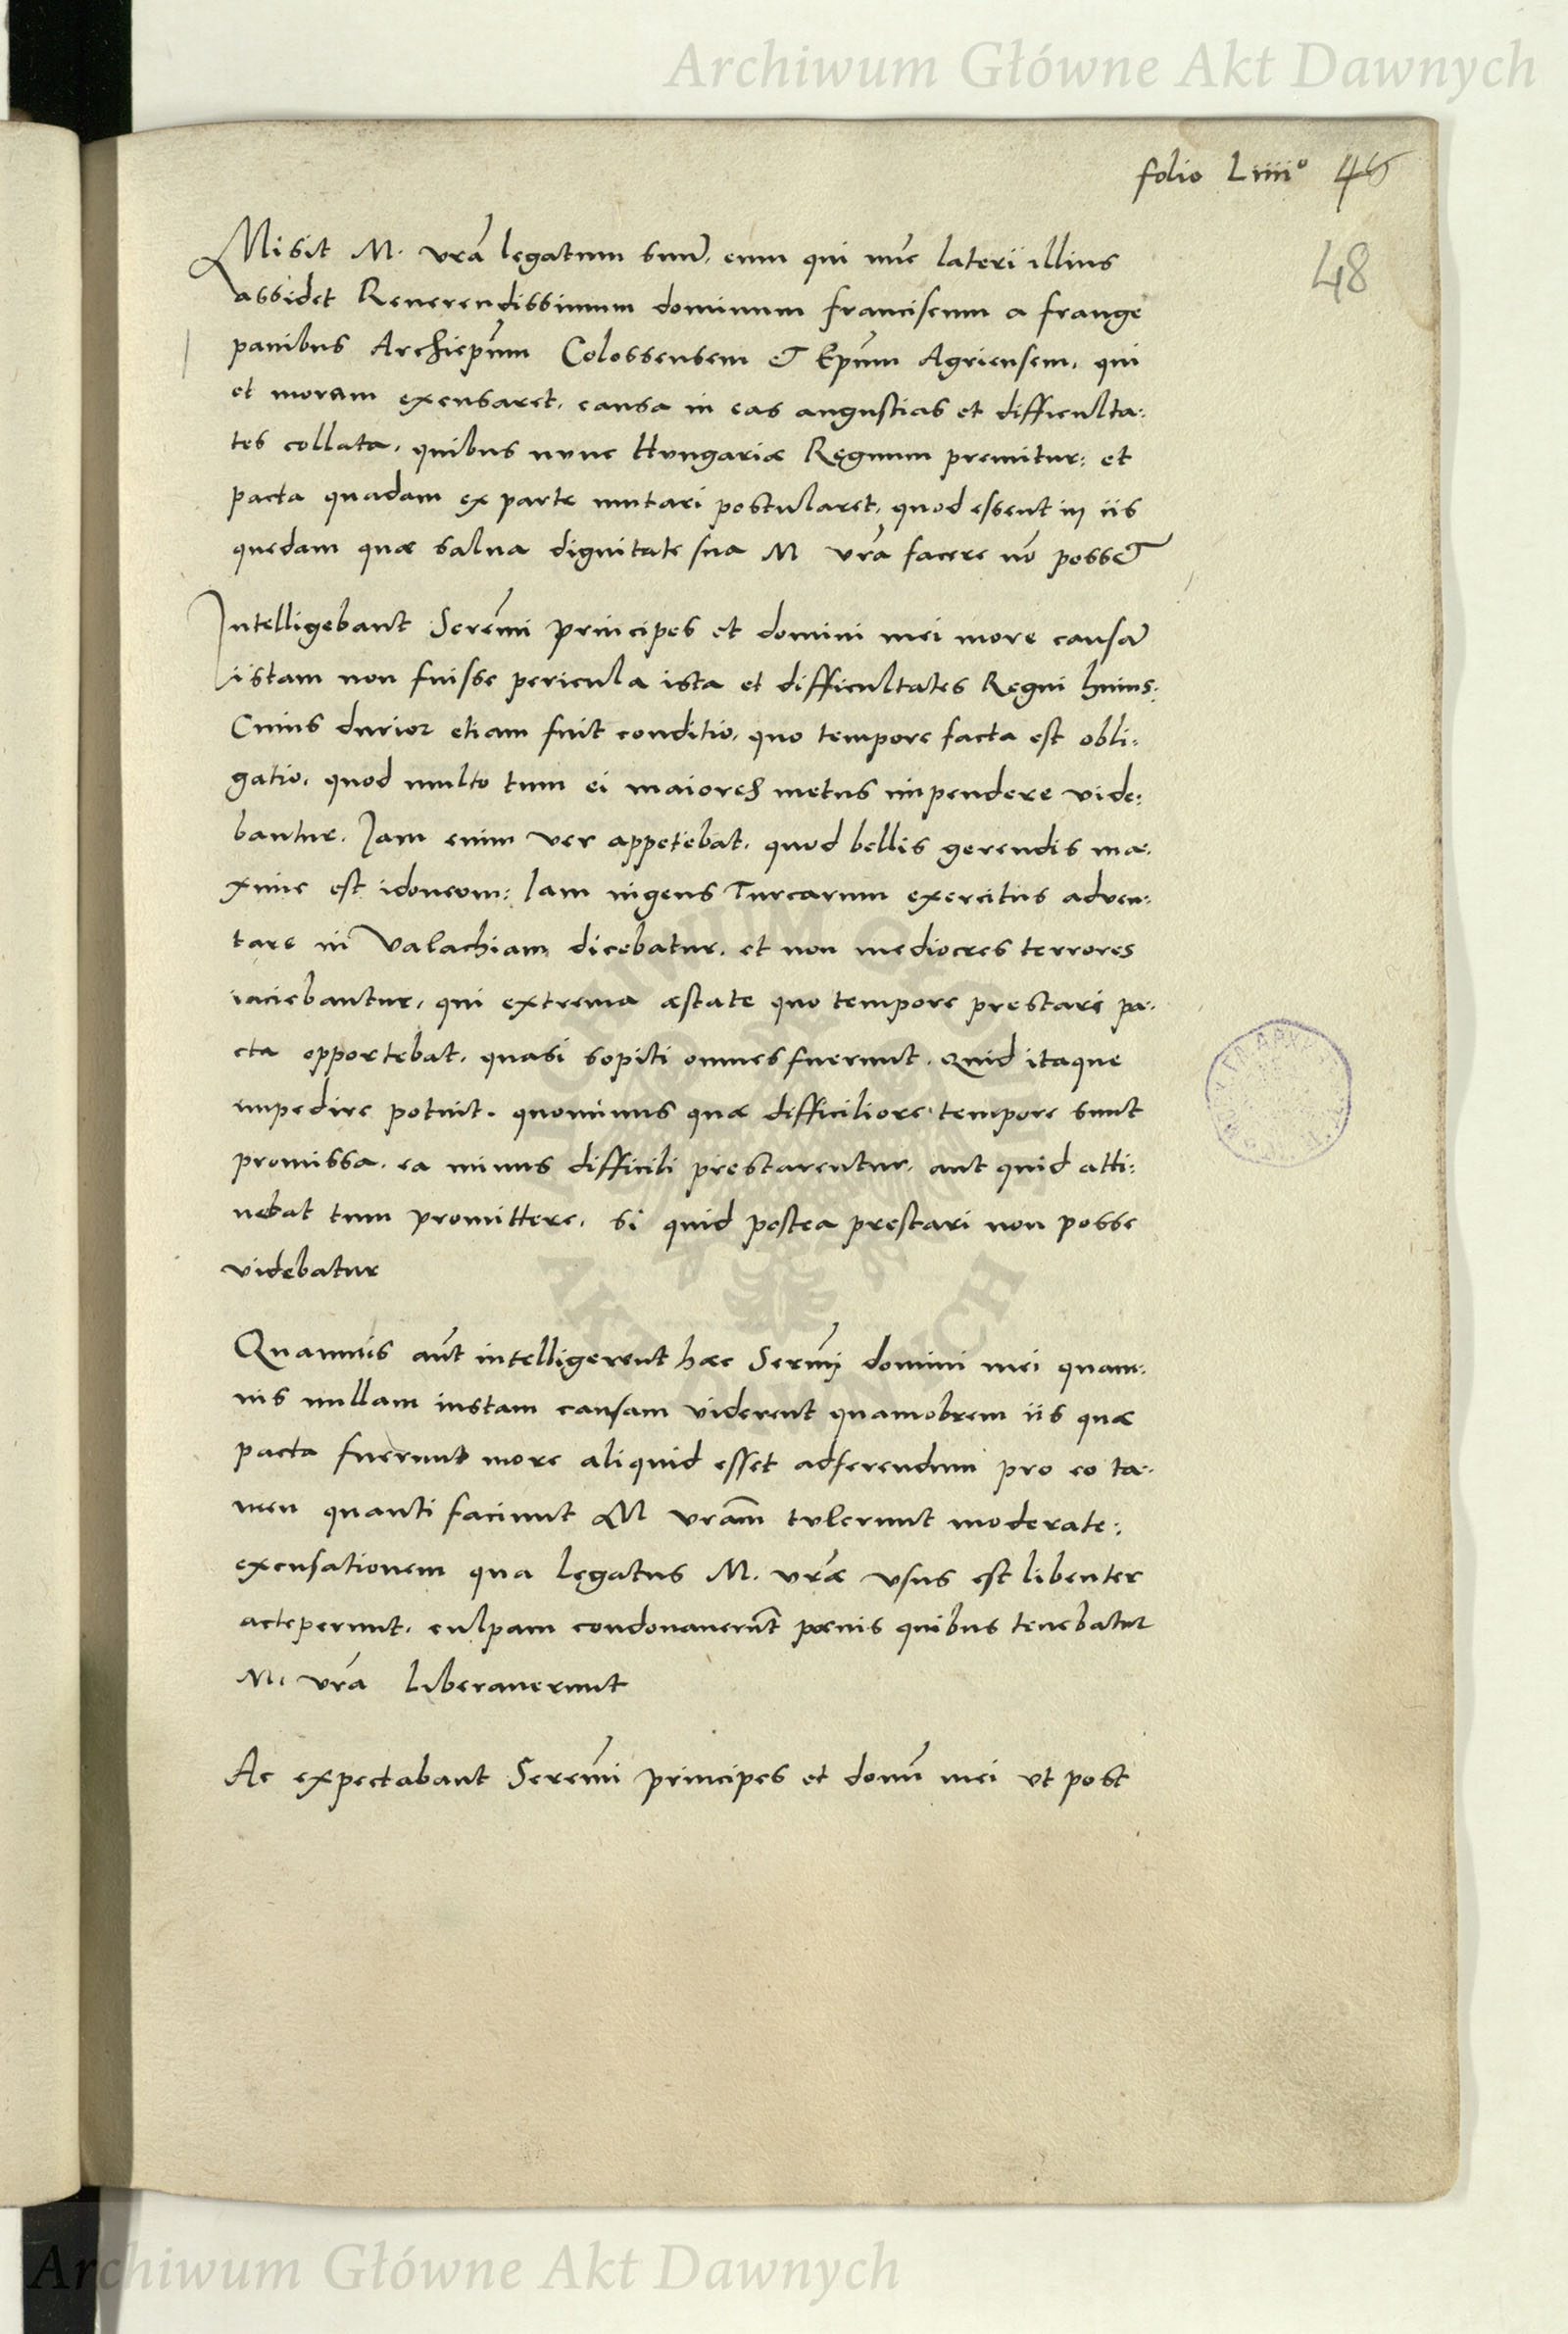 Archiwum Główne Akt Dawnych
folio Liiii° 46
48
Misit M. vra͞ legatum suu͞. eum qui nu͞c laterii illius
assidet Reuerendissimum dominum franciscum a frange
panibus Archiep͞um Colossensem et Ep͞um Agriensem. qui
et moram excusaret. causa in eas angustias et difficulta:
tes collata. quibus nunc Hungariæ Regnum premitur: et
pacta quadam ex parte mutari postularet. quod essent in iis
quedam quæ salua dignitate sua M vra͞ facere no͞ posset
Intelligebant Sere͞mi principes et domini mei more causa͞
iistam non fuisse pericula ista et difficultates Regni huius:
Cuius durior etiam fuit conditio. quo tempore facta est obli:
gatio. quod multo tum ei maiores metus impendere vide:
bantur. Jam enim ver appetebat. quod bellis gerendis ma:
xime est idoneom: Iam ingens Turcarum exercitus adven:
tare in Valachiam dicebatur. et non mediocres terrores
iaciebantur. qui extrema æstate quo tempore prestari pa:
cta opportebat. quasi sopiti omnes fuerunt. Quid itaque
impedire potuit. quominus quæ difficiliore tempore sunt
promissa. ea minus difficili prestarentur. aut quid atti:
nebat tum promittere. si quid postea prestari non posse
videbatur
Quamuis au͞t intelligerent hæc Ser͞mi domini mei quam:
uis nullam iustam causam viderent quamobrem iis quæ
pacta fuerunt more aliquid esset adferendum pro eo ta:
men quanti faciunt M vra͞m tulerunt moderate:
excusationem qua legatus M. vræ͞ vsus est libenter
acceperunt. culpam condonaueru͞t pœnis quibus tenebatur
M. vra͞ liberauerunt
Ac expectabant Sere͞mi principes et domi͞ mei vt post
Archiwum Główne Akt Dawnych